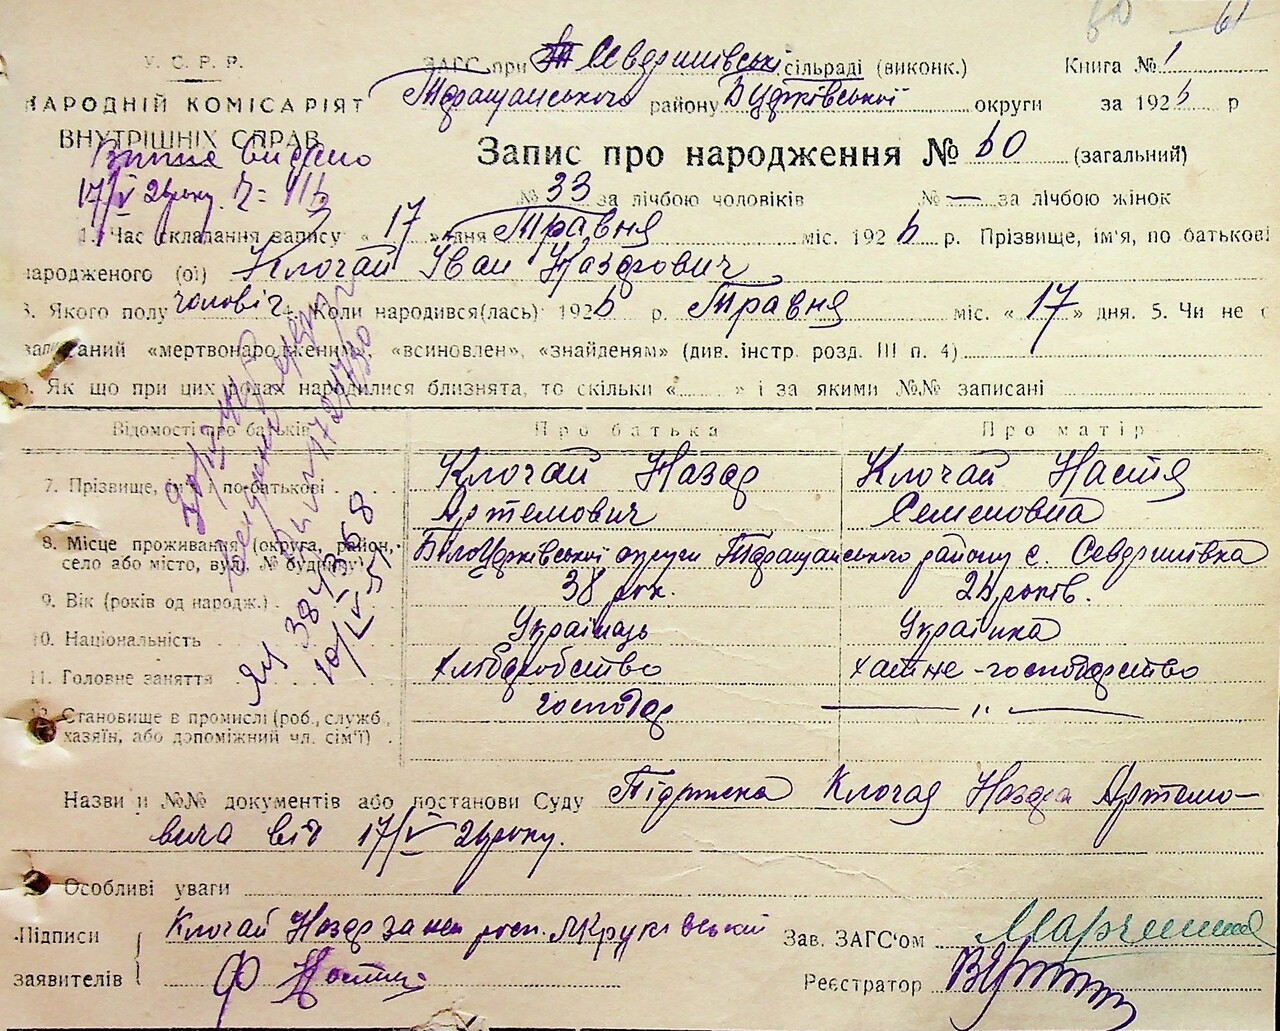 60 61
У. С. Р. Р.
НАРОДНІЙ КОМІСАРІЯТ
ВНУТРІШНІХ СПРАВ
ЗАГС при Северинівські сільраді (виконк.) Книга № 1
Таращанського району Б Црківської округи за 1926 р
видано
17/V 26 року
Запис про народження № 60 (загальний)
№ 33 за лічбою чоловіків № — за лічбою жінок
1. Час складання запису « 17 » дня Травня міс. 1926 р. Прізвище, ім'я, по батькові
народженого (ої) Клочай Іван Назарович
3. Якого полу чоловіч 4. Коли народився(лась) 1926 р. Травня міс. « 17 » дня. 5. Чи не є
записаний «мертвонародженим», «всиновлен», «знайденям» (див. інстр. розд. III п. 4)
6. Як що при цих родах народилися близнята, то скільки « » і за якими №№ записані
Відомості про батьків Про батька Про матір
7. Прізвище, ім'я, по-батькові Клочай Назар Артемович Клочай Настя Семеновна
8. Місце проживання (округа, район, село або місто, вул. № будинку) Білоцерківської округи Таращанського району с. Северинівка
9. Вік (років од народж.) 38 рок. 26 років.
10. Національність Українець Українка
11. Головне заняття Хліборобство хатне-господарство
12. Становище в промислі (роб., служб., хазяїн, або допоміжний чл. сім'ї) господар — " —
10/IV-51
Назви и №№ документів або постанови Суду Клочая Назара Артемо-
вича від 17/V 26 року.
Особливі уваги
Підписи заявителів Клочай Назар за неп росп. Мкруківський
Зав. ЗАГС'ом
Ф Настя
Реєстратор